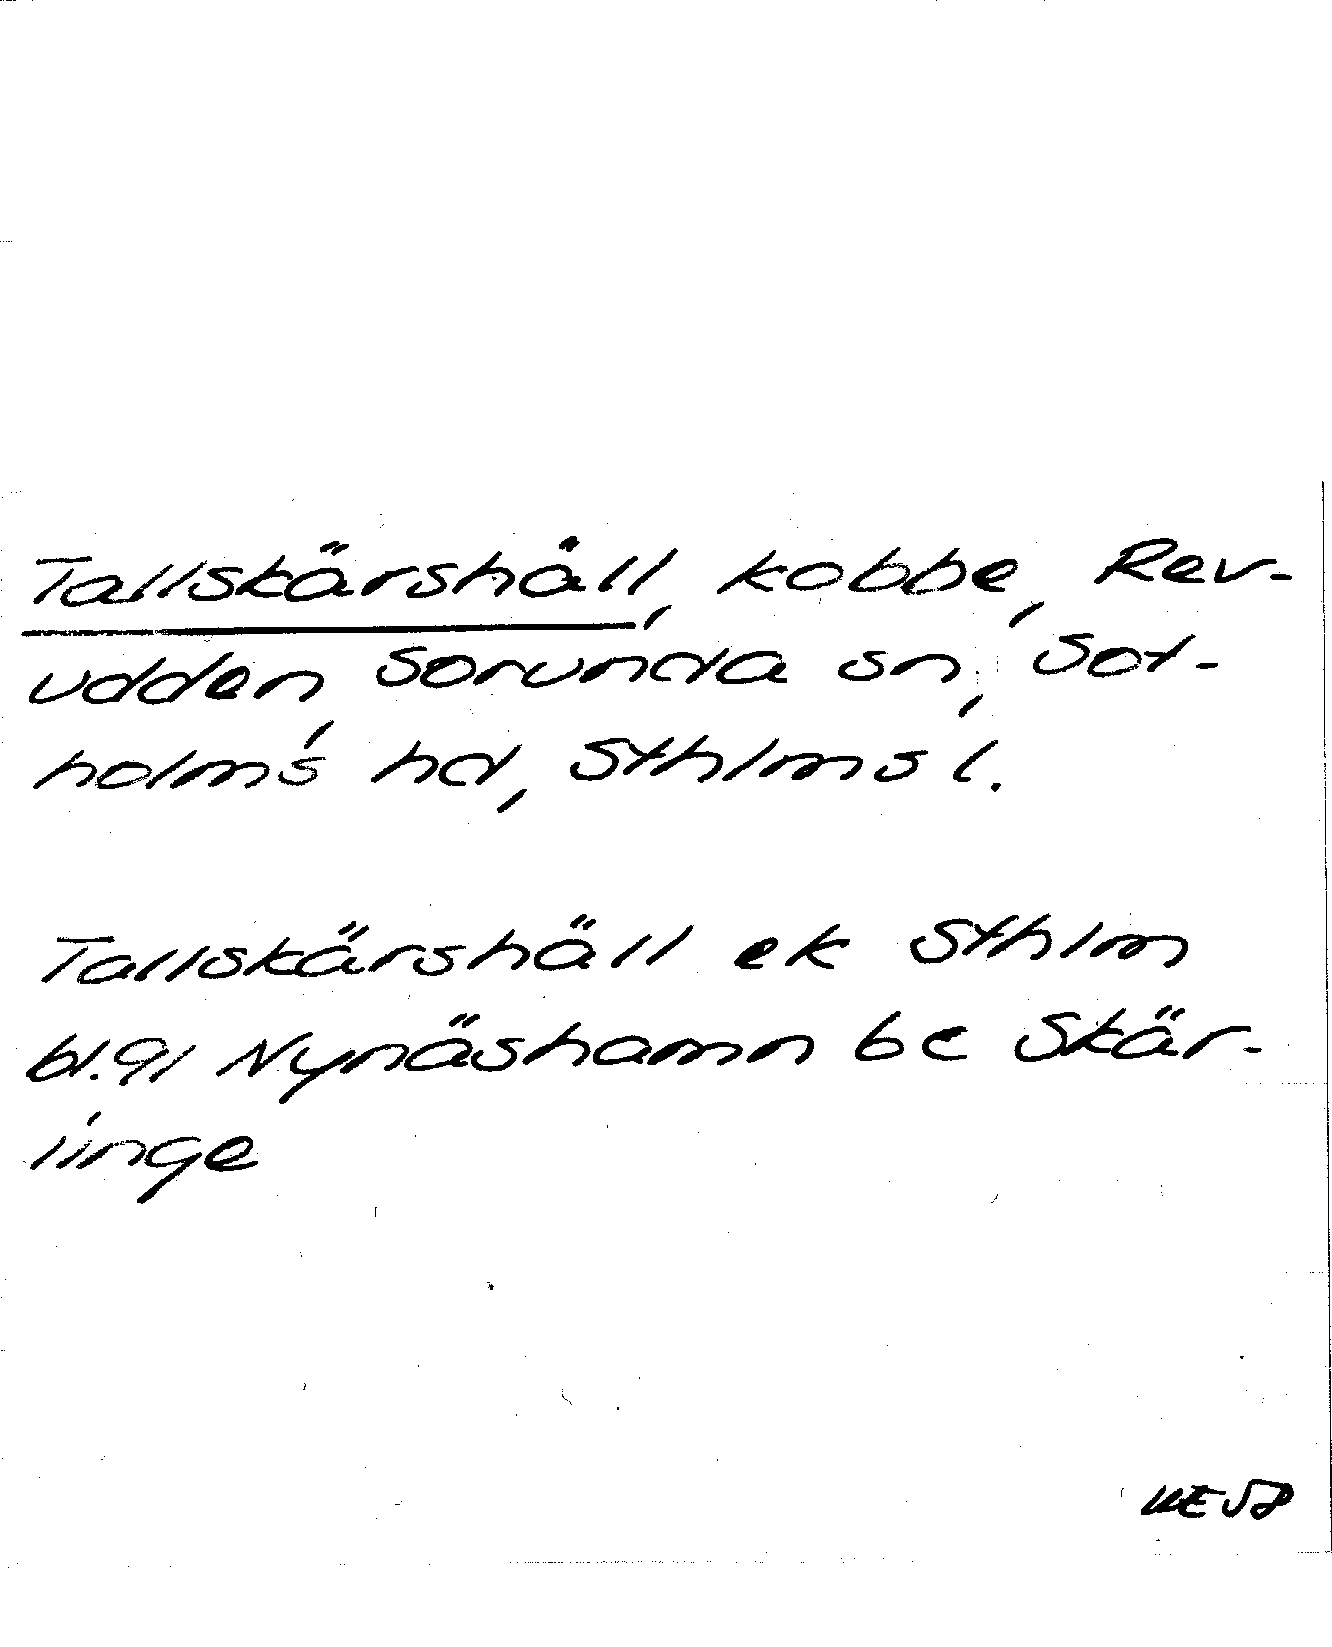 Tallskärshåll, kobbe, Rev-
udden, Sorunda sn, Sot-
holms hd, Sthlms l.
Tallskärshäll ek Sthlm
bl.91 Nynäshamn be Skär-
linge